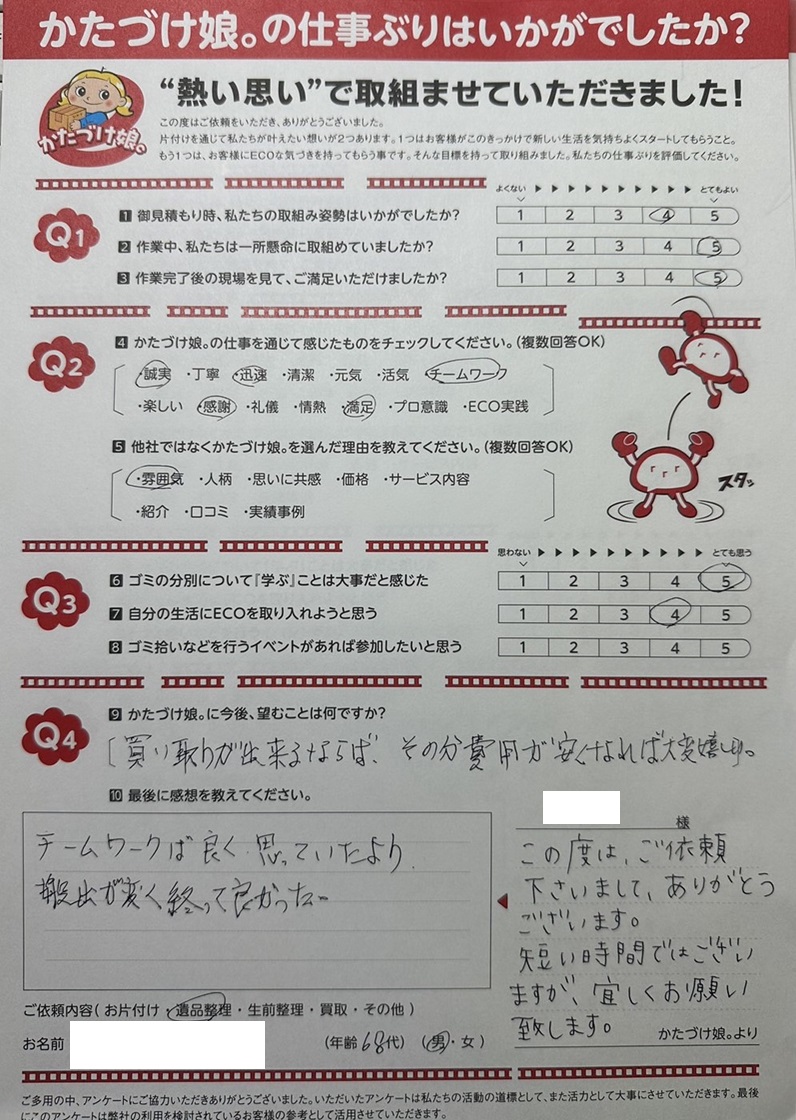 かたづけ娘。の仕事ぶりはいかがでしたか？
“熱い思い”で取組ませていただきました！
かたづけ娘。
この度はご依頼をいただき、ありがとうございました。
片付けを通じて私たちが叶えたい想いが2つあります。1つはお客様がこのきっかけで新しい生活を気持ちよくスタートしてもらうこと。
もう1つは、お客様にECOな気づきを持ってもらう事です。そんな目標を持って取り組みました。私たちの仕事ぶりを評価してください。
よくない ▶▶▶▶▶▶▶▶▶▶ とてもよい
Q1
1 御見積もり時、私たちの取組み姿勢はいかがでしたか？ 1 2 3 4 5
2 作業中、私たちは一所懸命に取組めていましたか？ 1 2 3 4 5
3 作業完了後の現場を見て、ご満足いただけましたか？ 1 2 3 4 5
Q2
4 かたづけ娘。の仕事を通じて感じたものをチェックしてください。（複数回答OK）
・誠実 ・丁寧 ・迅速 ・清潔 ・元気 ・活気 ・チームワーク
・楽しい ・感謝 ・礼儀 ・情熱 ・満足 ・プロ意識 ・ECO実践
5 他社ではなくかたづけ娘。を選んだ理由を教えてください。（複数回答OK）
・雰囲気 ・人柄 ・思いに共感 ・価格 ・サービス内容
・紹介 ・口コミ ・実績事例
スタッ
思わない ▶▶▶▶▶▶▶▶▶▶ とても思う
Q3
6 ゴミの分別について『学ぶ』ことは大事だと感じた 1 2 3 4 5
7 自分の生活にECOを取り入れようと思う 1 2 3 4 5
8 ゴミ拾いなどを行うイベントがあれば参加したいと思う 1 2 3 4 5
Q4
9 かたづけ娘。に今後、望むことは何ですか？
買い取りが出来るならば、その分費用が安くなれば大変嬉しい。
10 最後に感想を教えてください。
チームワークは良く思っていたより
搬出が早く終って良かった
様
この度は、ご依頼
下さいまして、ありがとう
ございます。
短い時間ではござい
ますが、宜しくお願い
致します。
かたづけ娘。より
ご依頼内容（ お片付け・遺品整理・生前整理・買取・その他 ）
お名前 （年齢68代） （男・女 ）
ご多用の中、アンケートにご協力いただきありがとうございました。いただいたアンケートは私たちの活動の道標として、また活力として大事にさせていただきます。最後
にこのアンケートは弊社の利用を検討されているお客様の参考として活用させていただきます。